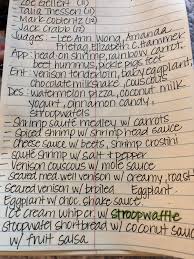 Zoe Zeigert (12)
Talia Thessen (12)
Mark Coblentz (12)
Jack Crain (12)
Judges - Lee Ann Wong, Amanda
Freitag, Elizabeth C. Hammer
App: head on shrimp, rainbow carrot,
beer hummus, pickled pigs feet
Ent: venison tenderloin, baby eggplant,
chocolate milkshake, couscous
Des: watermelon pizza, coconut milk
yogurt, cinnamon candy,
stroopwafels
Shrimp sauté medley w/ carrots
Spiced shrimp w/ shrimp head sauce
Cheese sauce w/ beets, shrimp crostini
Sauté shrimp w/ salt + pepper
Venison couscous w/ mole sauce
Seared med well venison w/ creamy, roast
Seared venison w/ broiled Eggplant
Eggplant w/ choc. shake sauce.
Ice cream whip w/ stroopwaffle
Stroopwafel shortbread w/ coconut sauce
w/ fruit salsa